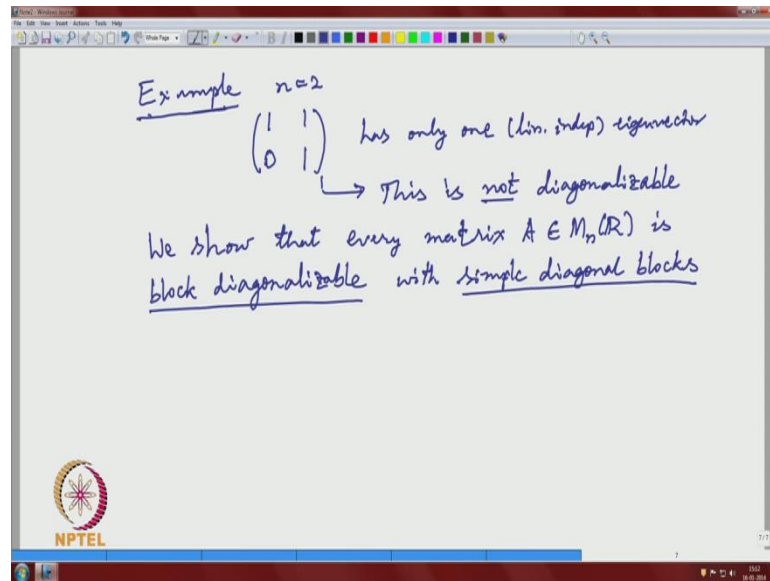 Note2 - Windows Journal
File Edit View Insert Actions Tools Help
Whole Page
Example n=2
(1 1
0 1) has only one (lin. indep) eigenvector
This is not diagonalizable
We show that every matrix A ∈ Mn(R) is
block diagonalizable with simple diagonal blocks
NPTEL
7/7
7
15:12
16-01-2014